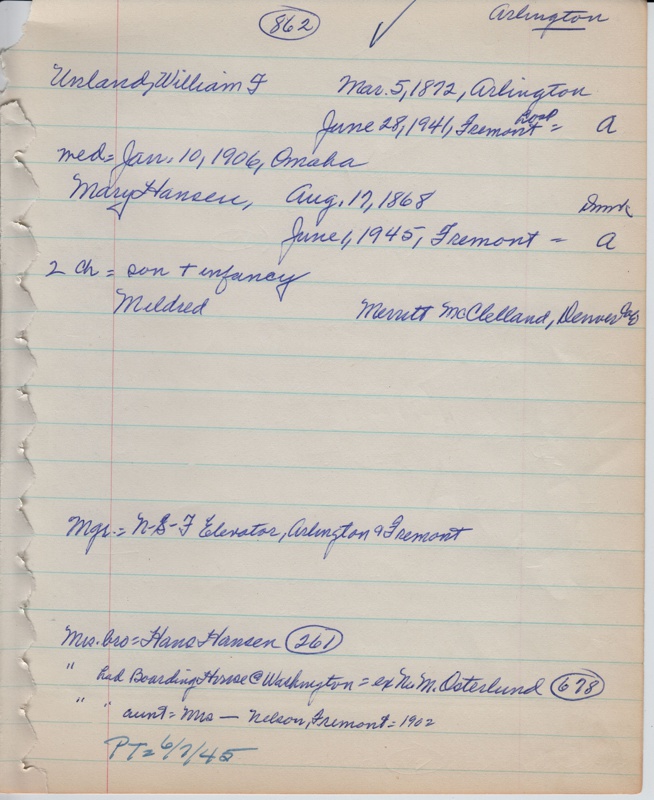 862
Arlington
Unland, William F Mar. 5, 1872, Arlington
June 28, 1941, Fremont hosp = A
med = Jan. 10, 1906, Omaha
Mary Hansen, Aug. 17, 1868 Dmrk
June 1, 1945, Fremont = A
2 ch = son + infancy
Mildred Merritt McClelland, Denver
Mgr. = N-S-F Elevator, Arlington & Fremont
Mrs. bro = Hans Hansen 261
" had Boarding House @ Washington = ex N. M. Osterlund 678
" " aunt = Mrs — Nelson, Fremont = 1902
PT = 6/7/45